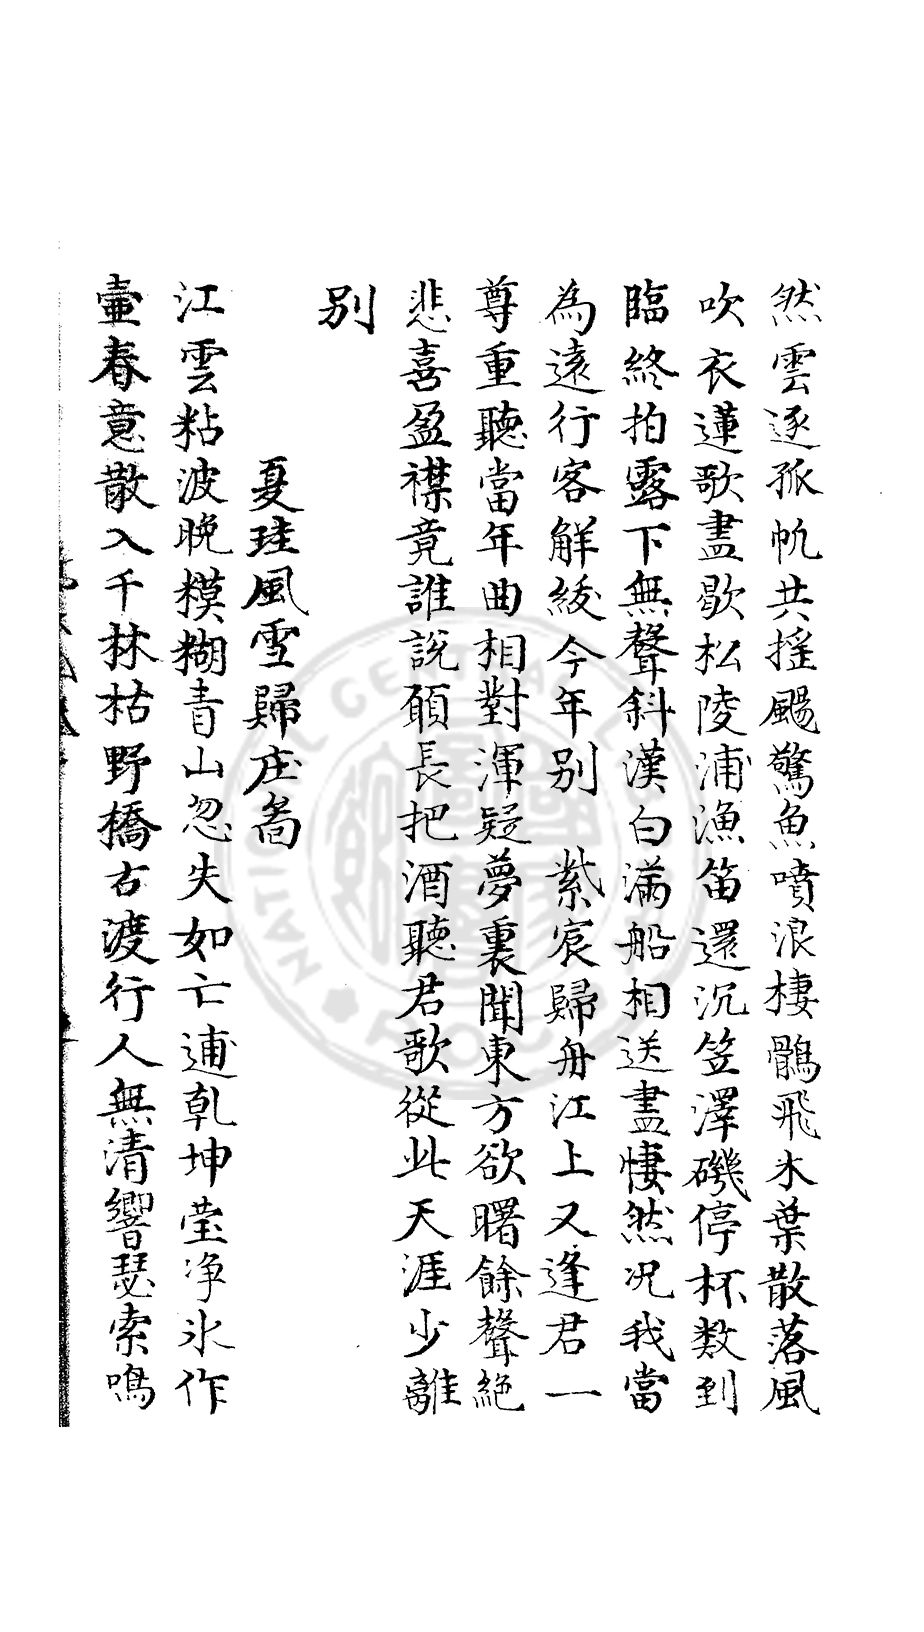 然雲逐孤帆共搖颺驚魚噴浪棲鶻飛木葉散落風
吹衣蓮歌盡歇松陵浦漁笛還沉笠澤磯停杯数到
臨終拍露下無聲斜漢白滿船相送盡悽然况我當
為遠行客解綬今年别 紫宸歸舟江上又逢君一
尊重聽當年曲相對渾疑夢裏聞東方欲曙餘聲絕
悲喜盈襟竟誰說願長把酒聽君歌從此天涯少離
别
夏珪風雪歸庄啚
江雲粘波晚糢糊青山忽失如亡逋乾坤瑩净氷作
壷春意散入千林枯野橋古渡行人無清響瑟索鳴
NATIONAL CENTRAL LIBRARY